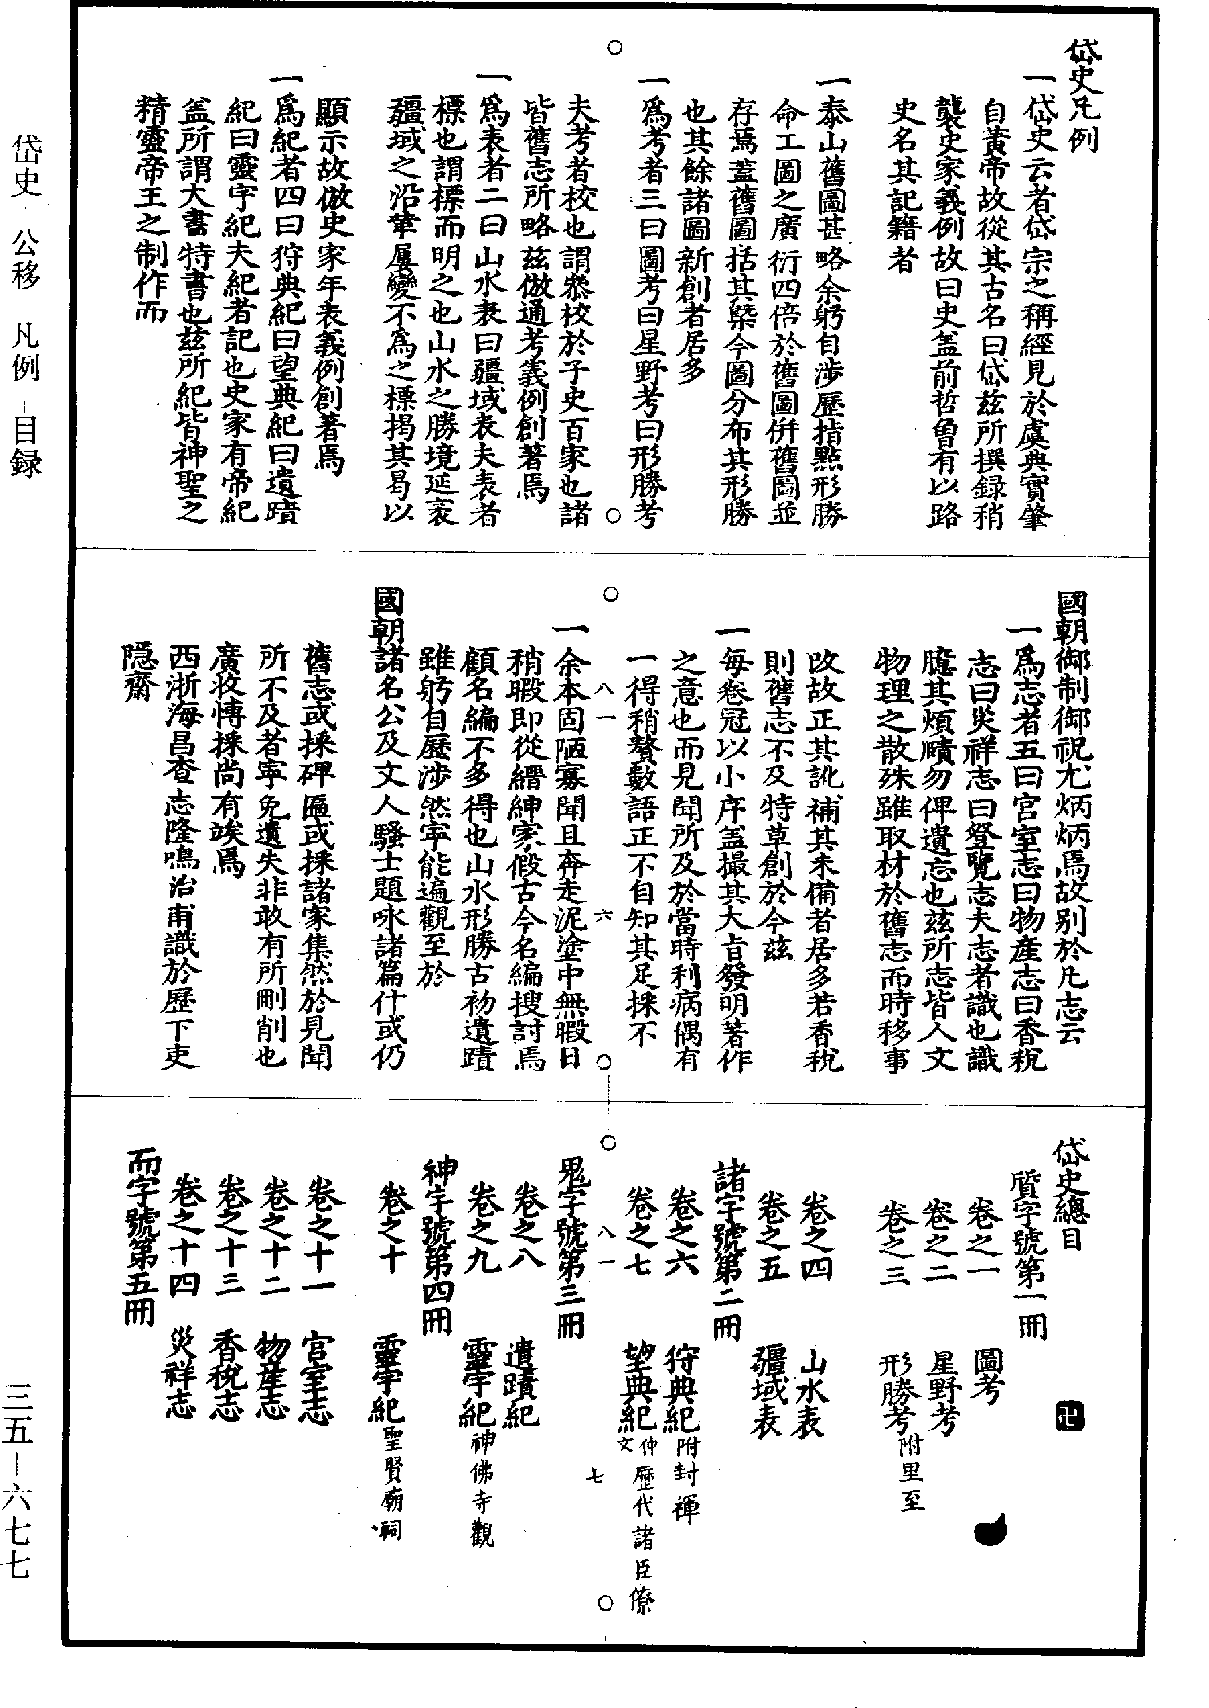 岱史凡例
一岱史云者岱宗之稱經見於虞典實肇
自黃帝故從其古名曰岱兹所撰録稍
襲史家義例故曰史盖前哲魯有以路
史名其記籍者
一泰山舊圖甚略余躬自涉歷指點形勝
命工圖之廣衍四倍於舊圖併舊圖並
存焉蓋舊圖括其槩今圖分布其形勝
也其餘諸圖新創者居多
一爲考者三曰圖考曰星野考曰形勝考
夫考者校也謂叅校於子史百家也諸
皆舊志所略兹倣通考義例創著焉
一爲表者二曰山水表曰疆域表夫表者
標也謂標而明之也山水之勝境延袤
疆域之沿革屢變不爲之標揭其曷以
顯示故倣史家年表義例創著焉
一爲紀者四曰狩典紀曰望典紀曰遺蹟
紀曰靈宇紀夫紀者記也史家有帝紀
盖所謂大書特書也兹所紀皆神聖之
精靈帝王之制作而
國朝御制御祝尤炳炳焉故别於凡志云
一爲志者五曰宫室志曰物産志曰香稅
志曰災祥志曰登覽志夫志者識也識
臆其煩賾勿俾遺忘也兹所志皆人文
物理之散殊雖取材於舊志而時移事
改故正其訛補其未備者居多若香稅
則舊志不及特草創於今兹
一每卷冠以小序盖撮其大旨發明著作
之意也而見聞所及於當時利病偶有
一得稍贅數語正不自知其足採不
一余本固陋寡聞且奔走泥塗中無暇日
稍暇即從縉紳家假古今名編搜討焉
顧名編不多得也山水形勝古初遺蹟
雖躬自歷涉然寧能遍觀至於
國朝諸名公及文人騷士題咏諸篇什或仍
舊志或採碑匾或採諸家集然於見聞
所不及者寧免遺失非敢有所刪削也
廣收慱採尚有竢焉
西浙海昌查志隆鳴治甫識於歷下吏
隱齋
岱史總目
質字號第一冊
卷之一 圖考
卷之二 星野考
卷之三 形勝考 附里至
卷之四 山水表
卷之五 疆域表
諸字號第二冊
卷之六 狩典紀 附封禪
卷之七 望典紀 歷代諸臣僚
鬼字號第三冊
卷之八 遺蹟紀
卷之九 靈宇紀 神佛寺觀
神字號第四冊
卷之十 靈宇紀 聖賢廟祠
卷之十一 宫室志
卷之十二 物産志
卷之十三 香稅志
卷之十四 災祥志
而字號第五冊
八一
六
八一
七
岱史 公移 凡例–目録
三五–六七七